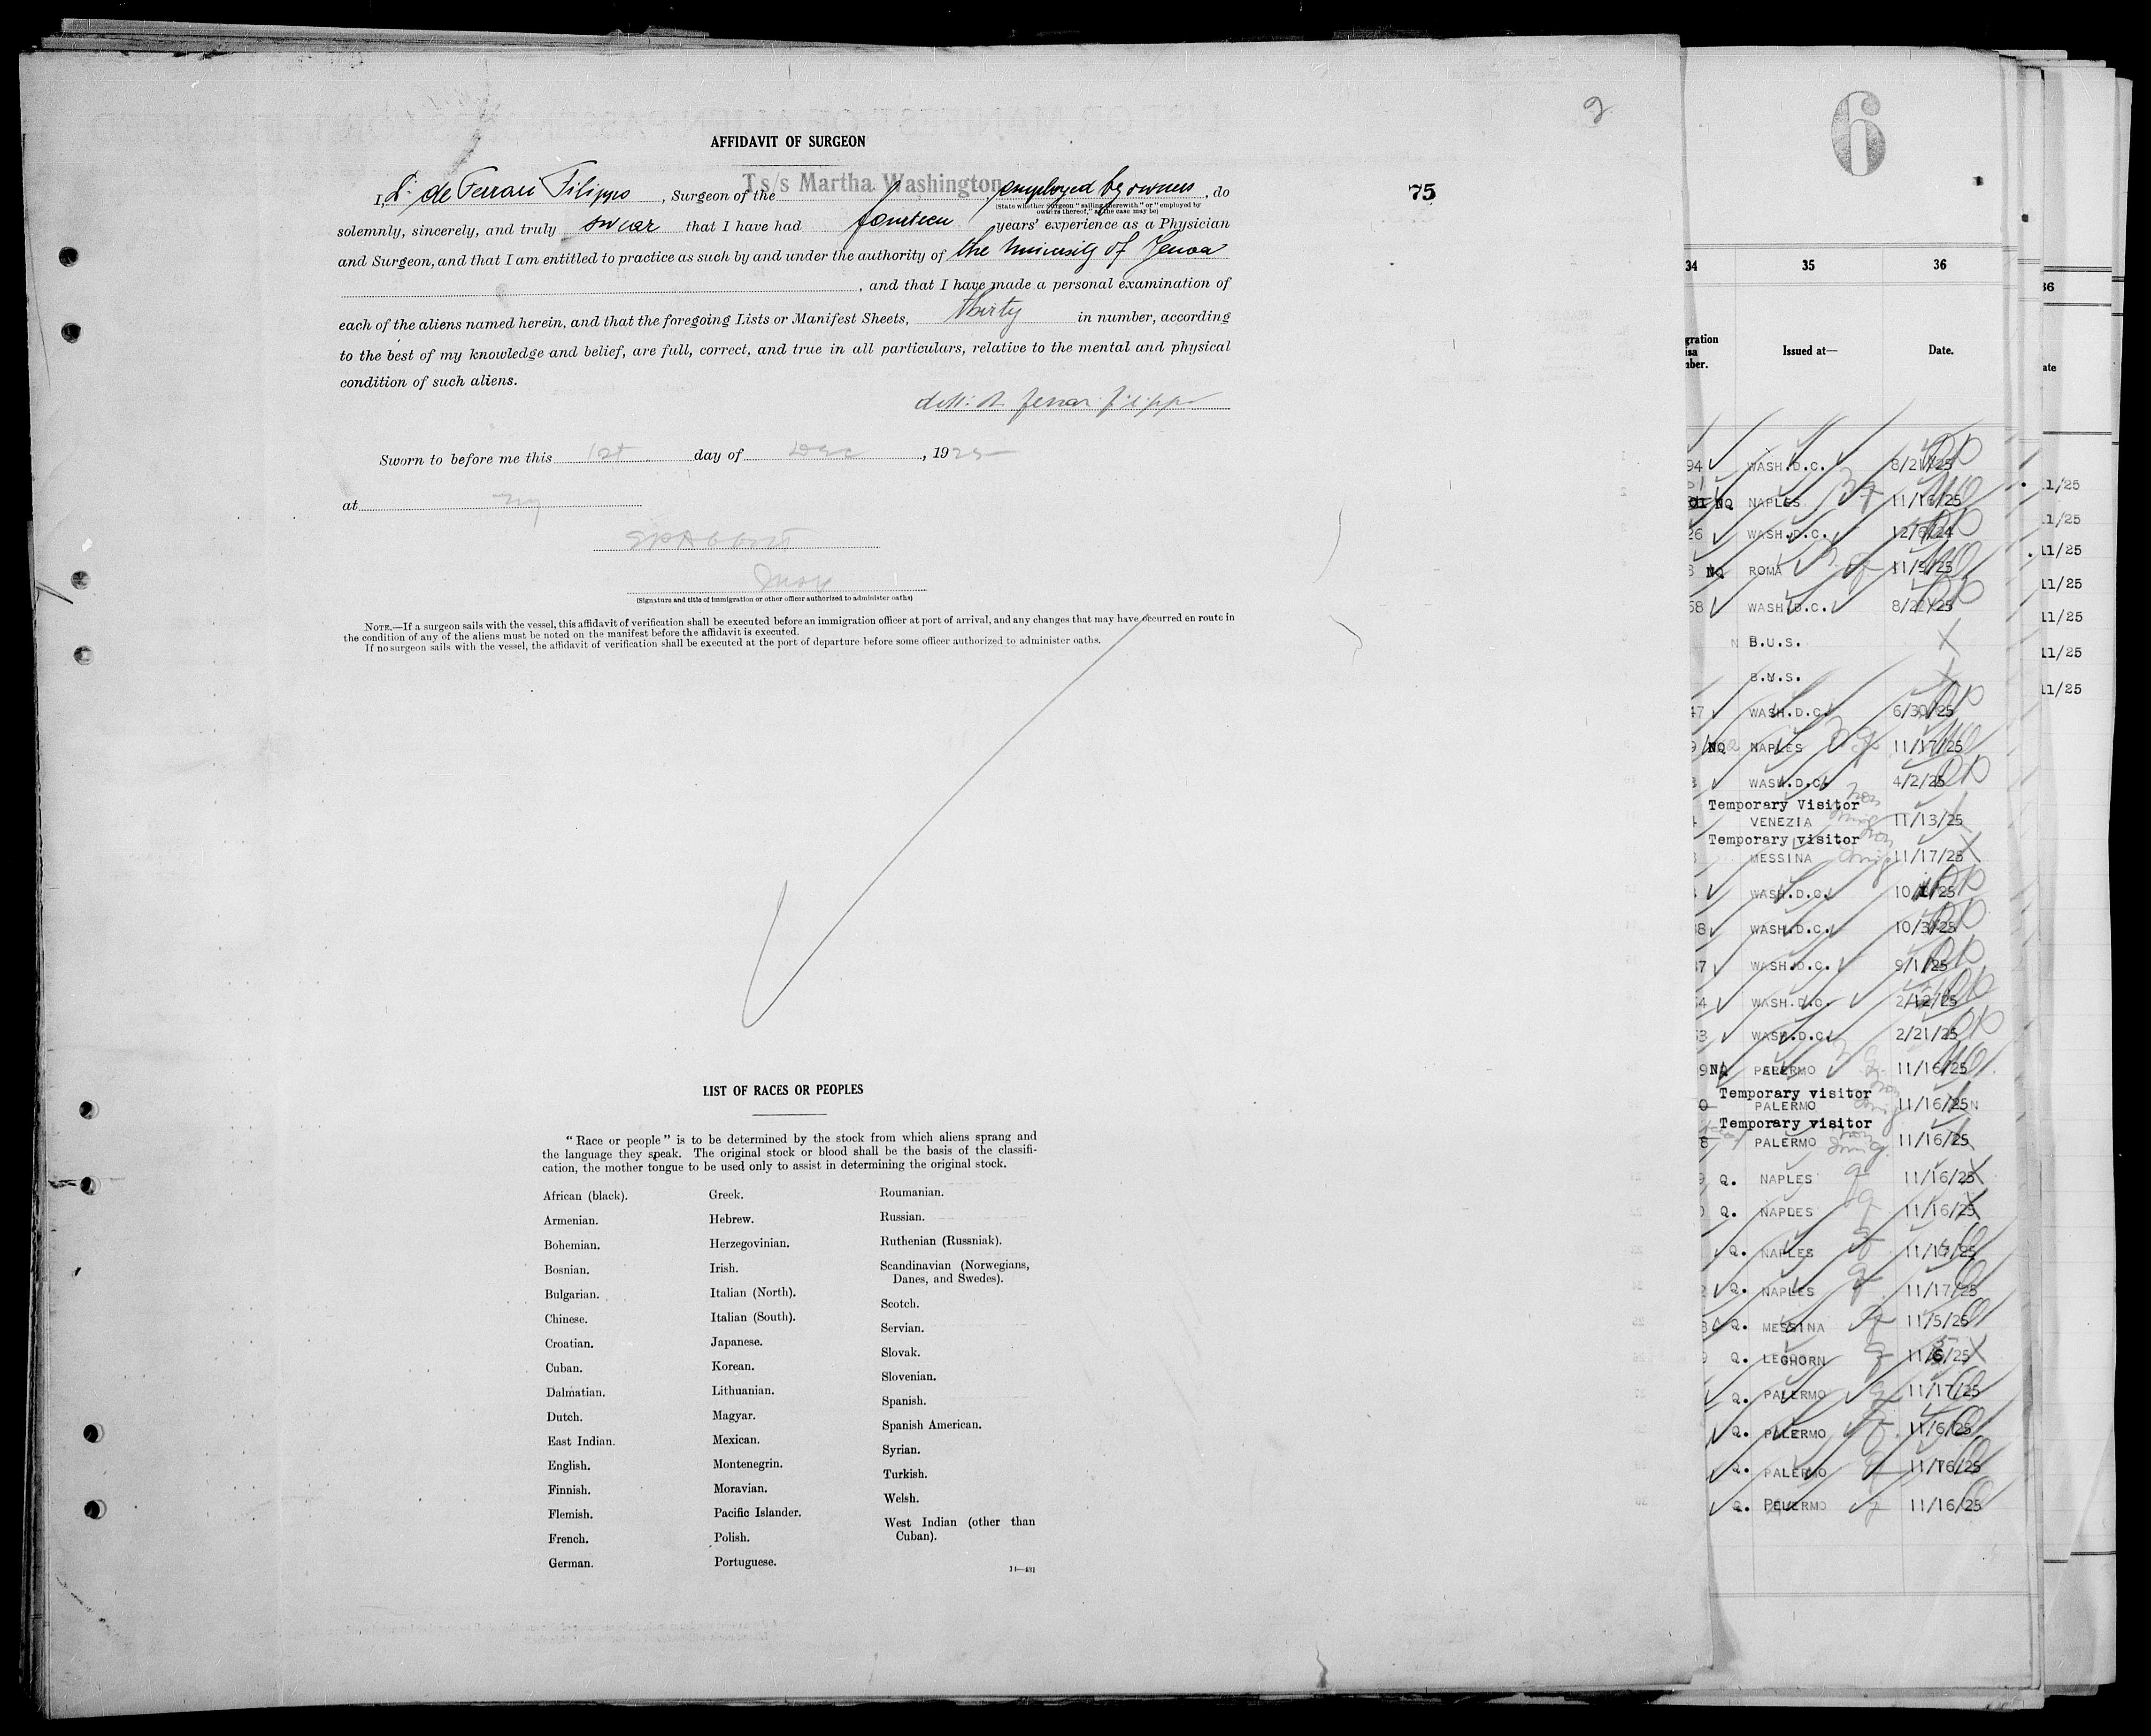 2
AFFIDAVIT OF SURGEON
T s/s Martha Washington
I, de Ferrari Filippo, Surgeon of the employed by owners, do
(State whether surgeon "sailing therewith" or "employed by
owners thereof," as the case may be)
75
solemnly, sincerely, and truly swear that I have had fourteen years' experience as a Physician
and Surgeon, and that I am entitled to practice as such by and under the authority of the University of Genoa
, and that I have made a personal examination of
each of the aliens named herein, and that the foregoing Lists or Manifest Sheets, thirty in number, according
to the best of my knowledge and belief, are full, correct, and true in all particulars, relative to the mental and physical
condition of such aliens.
Filippo
Sworn to before me this 1st day of Dec, 1925
at NY
(Signature and title of immigration or other officer authorized to administer oaths)
NOTE.—If a surgeon sails with the vessel, this affidavit of verification shall be executed before an immigration officer at port of arrival, and any changes that may have occurred en route in
the condition of any of the aliens must be noted on the manifest before the affidavit is executed.
If no surgeon sails with the vessel, the affidavit of verification shall be executed at the port of departure before some officer authorized to administer oaths.
LIST OF RACES OR PEOPLES
"Race or people" is to be determined by the stock from which aliens sprang and
the language they speak. The original stock or blood shall be the basis of the classifi-
cation, the mother tongue to be used only to assist in determining the original stock.
African (black).
Armenian.
Bohemian.
Bosnian.
Bulgarian.
Chinese.
Croatian.
Cuban.
Dalmatian.
Dutch.
East Indian.
English.
Finnish.
Flemish.
French.
German.
Greek.
Hebrew.
Herzegovinian.
Irish.
Italian (North).
Italian (South).
Japanese.
Korean.
Lithuanian.
Magyar.
Mexican.
Montenegrin.
Moravian.
Pacific Islander.
Polish.
Portuguese.
Roumanian.
Russian.
Ruthenian (Russniak).
Scandinavian (Norwegians,
Danes, and Swedes).
Scotch.
Servian.
Slovak.
Slovenian.
Spanish.
Spanish American.
Syrian.
Turkish.
Welsh.
West Indian (other than
Cuban).
14—431
6
34 35 36
gration
isa
mber.
Issued at—
Date.
94 WASH.D.C. 8/21/25
NQ NAPLES 11/16/25
26 WASH.D.C. 12/6/24
NQ ROMA 11/5/25
58 WASH.D.C. 8/21/25
N B.U.S.
B.U.S.
47 WASH.D.C. 6/30/25
9 NQ NAPLES 11/17/25
WASH.D.C. 4/2/25
Temporary Visitor
VENEZIA 11/13/25
Temporary visitor
MESSINA 11/17/25
WASH.D.C. 10/1/25
38 WASH.D.C. 10/3/25
37 WASH.D.C. 9/1/25
54 WASH.D.C. 2/12/25
53 WASH.D.C. 2/21/25
9 NQ PALERMO 11/16/25
Temporary visitor
0 PALERMO 11/16/25
Temporary visitor
8 PALERMO 11/16/25
Q. NAPLES 11/16/25
Q. NAPLES 11/16/25
Q. NAPLES 11/17/25
Q. NAPLES 11/17/25
Q. MESSINA 11/5/25
Q. LEGHORN 11/6/25
Q. PALERMO 11/17/25
Q. PALERMO 11/6/25
Q. PALERMO 11/16/25
Q. PALERMO 11/16/25
36
ate
11/25
11/25
11/25
11/25
11/25
11/25
11/25